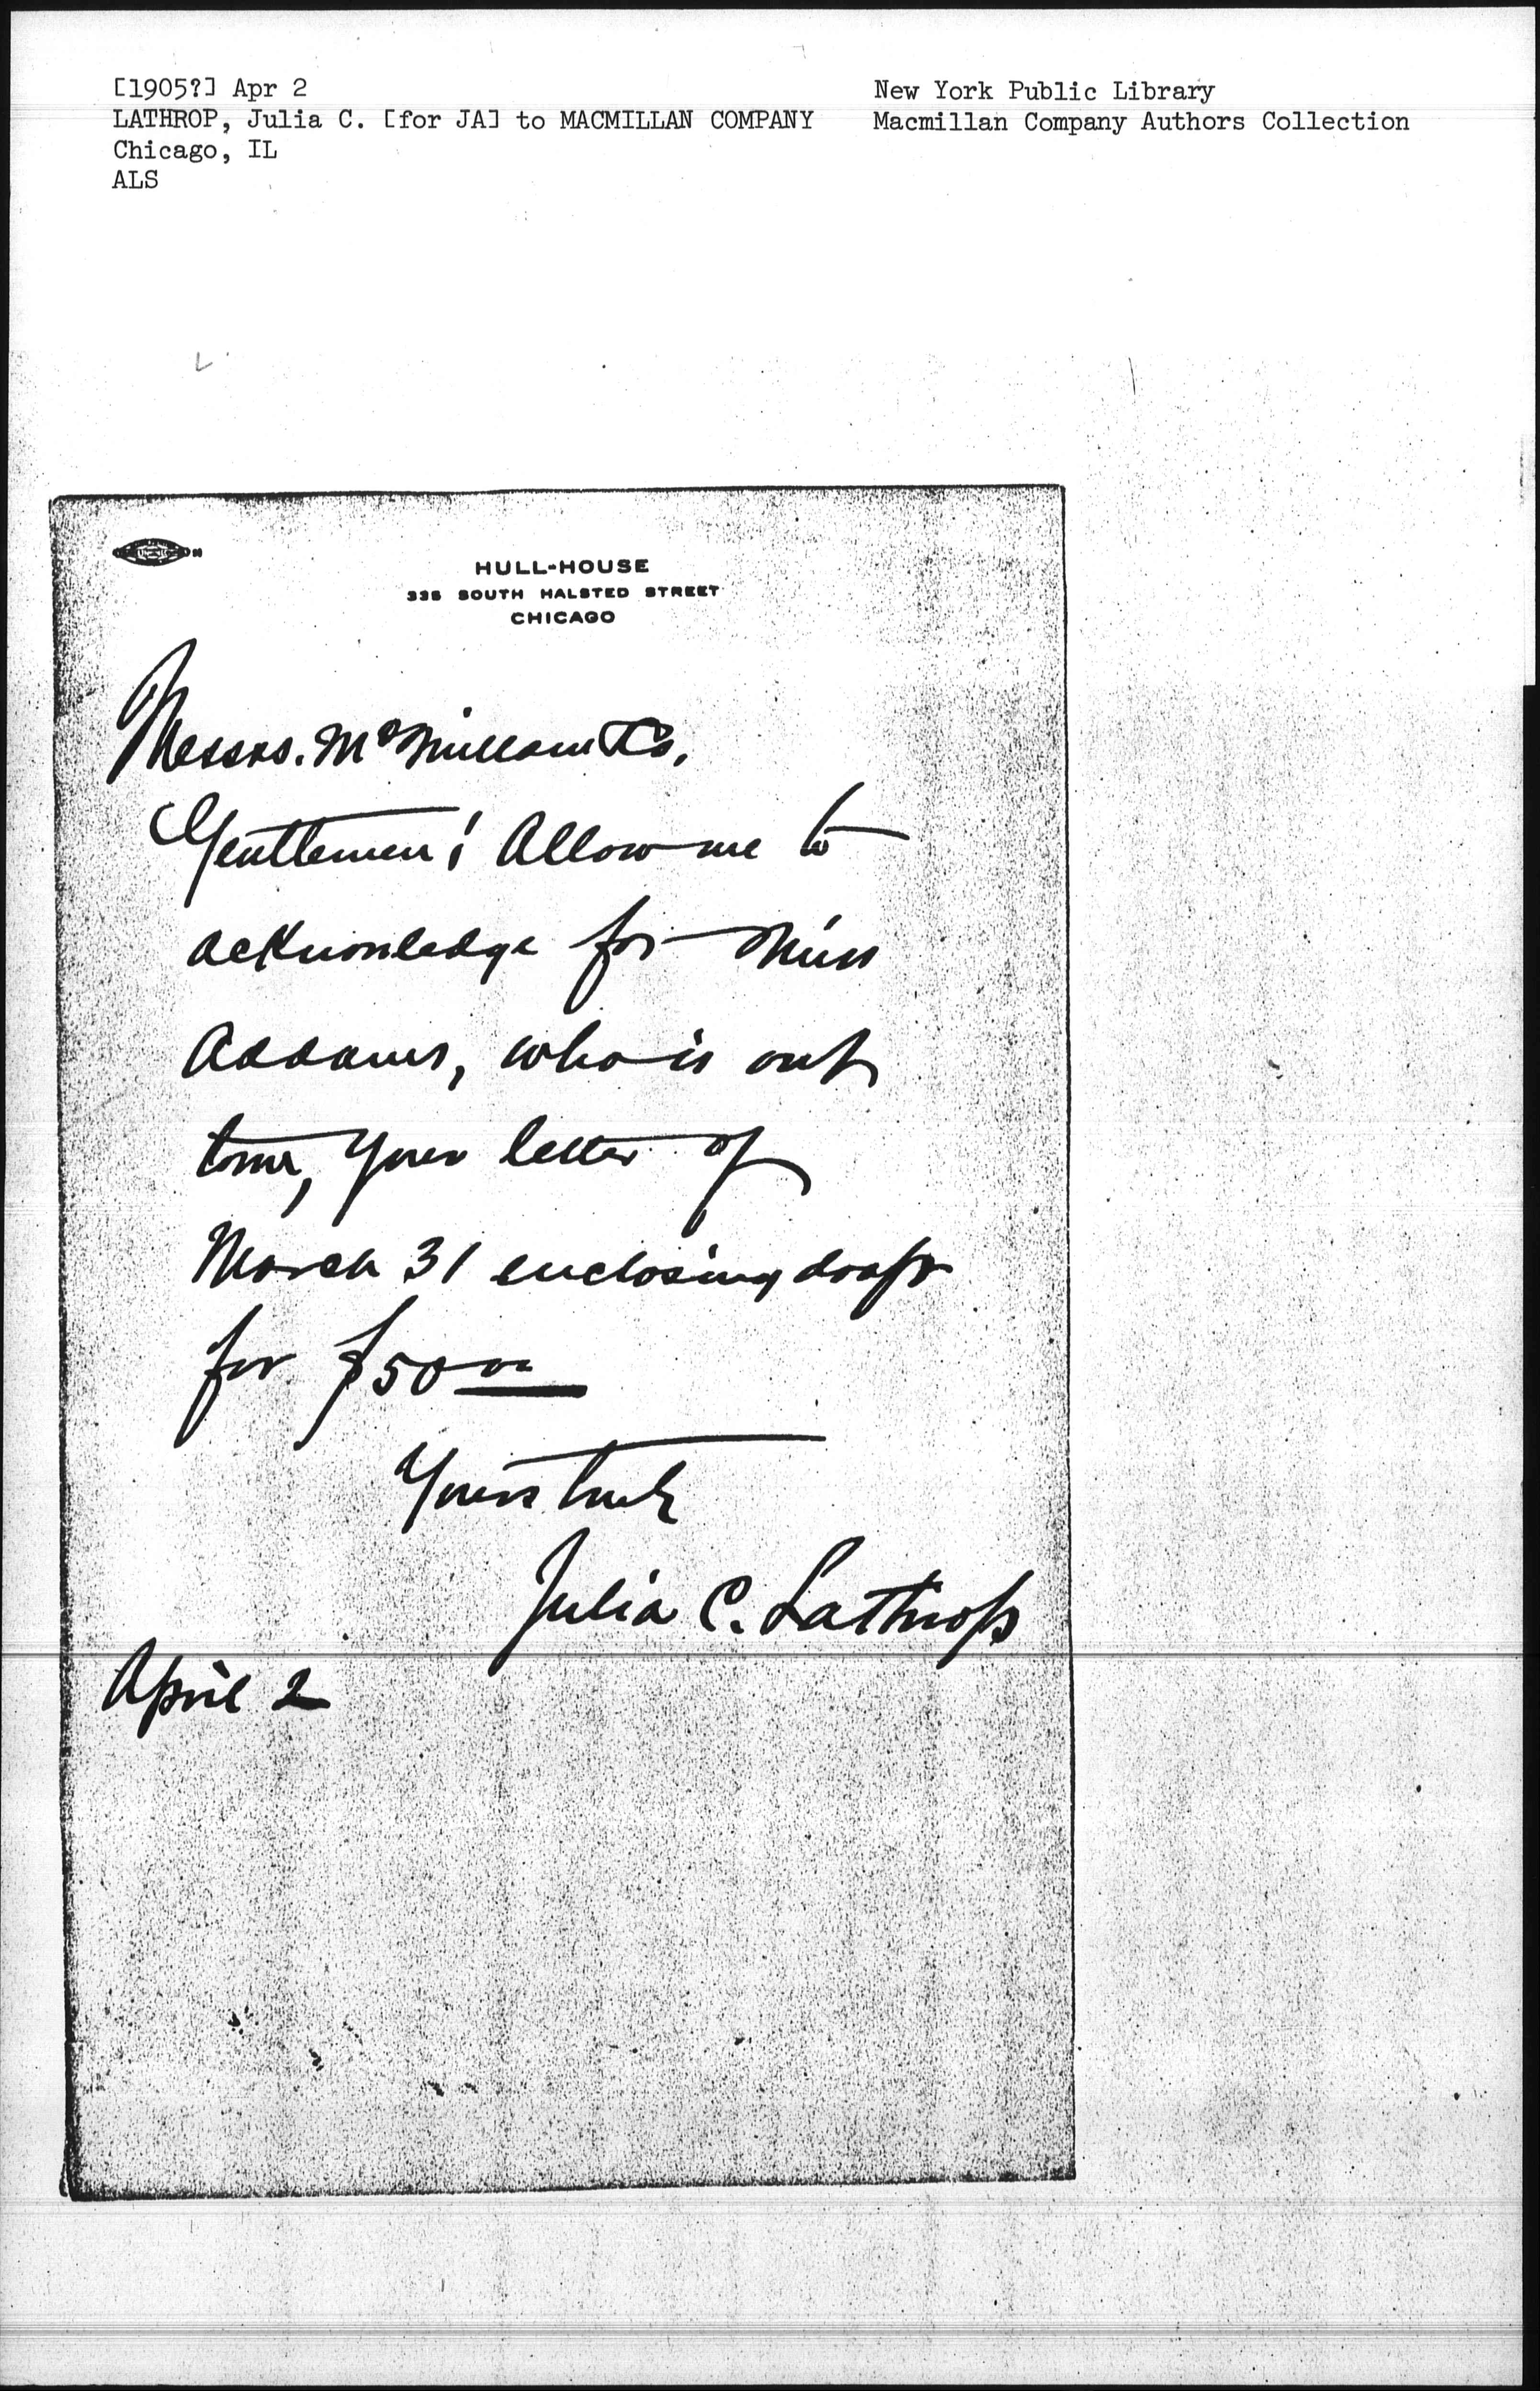 [1905?] Apr 2
LATHROP, Julia C. [for JA] to MACMILLAN COMPANY
Chicago, IL
ALS
New York Public Library
Macmillan Company Authors Collection
HULL-HOUSE
335 SOUTH HALSTED STREET
CHICAGO
Messrs. McMillan & Co,
Gentlemen: Allow me to
acknowledge for Miss
Addams, who is out
town, your letter of
March 31 enclosing draft
for $50 00
Yours truly
Julia C. Lathrop
April 2